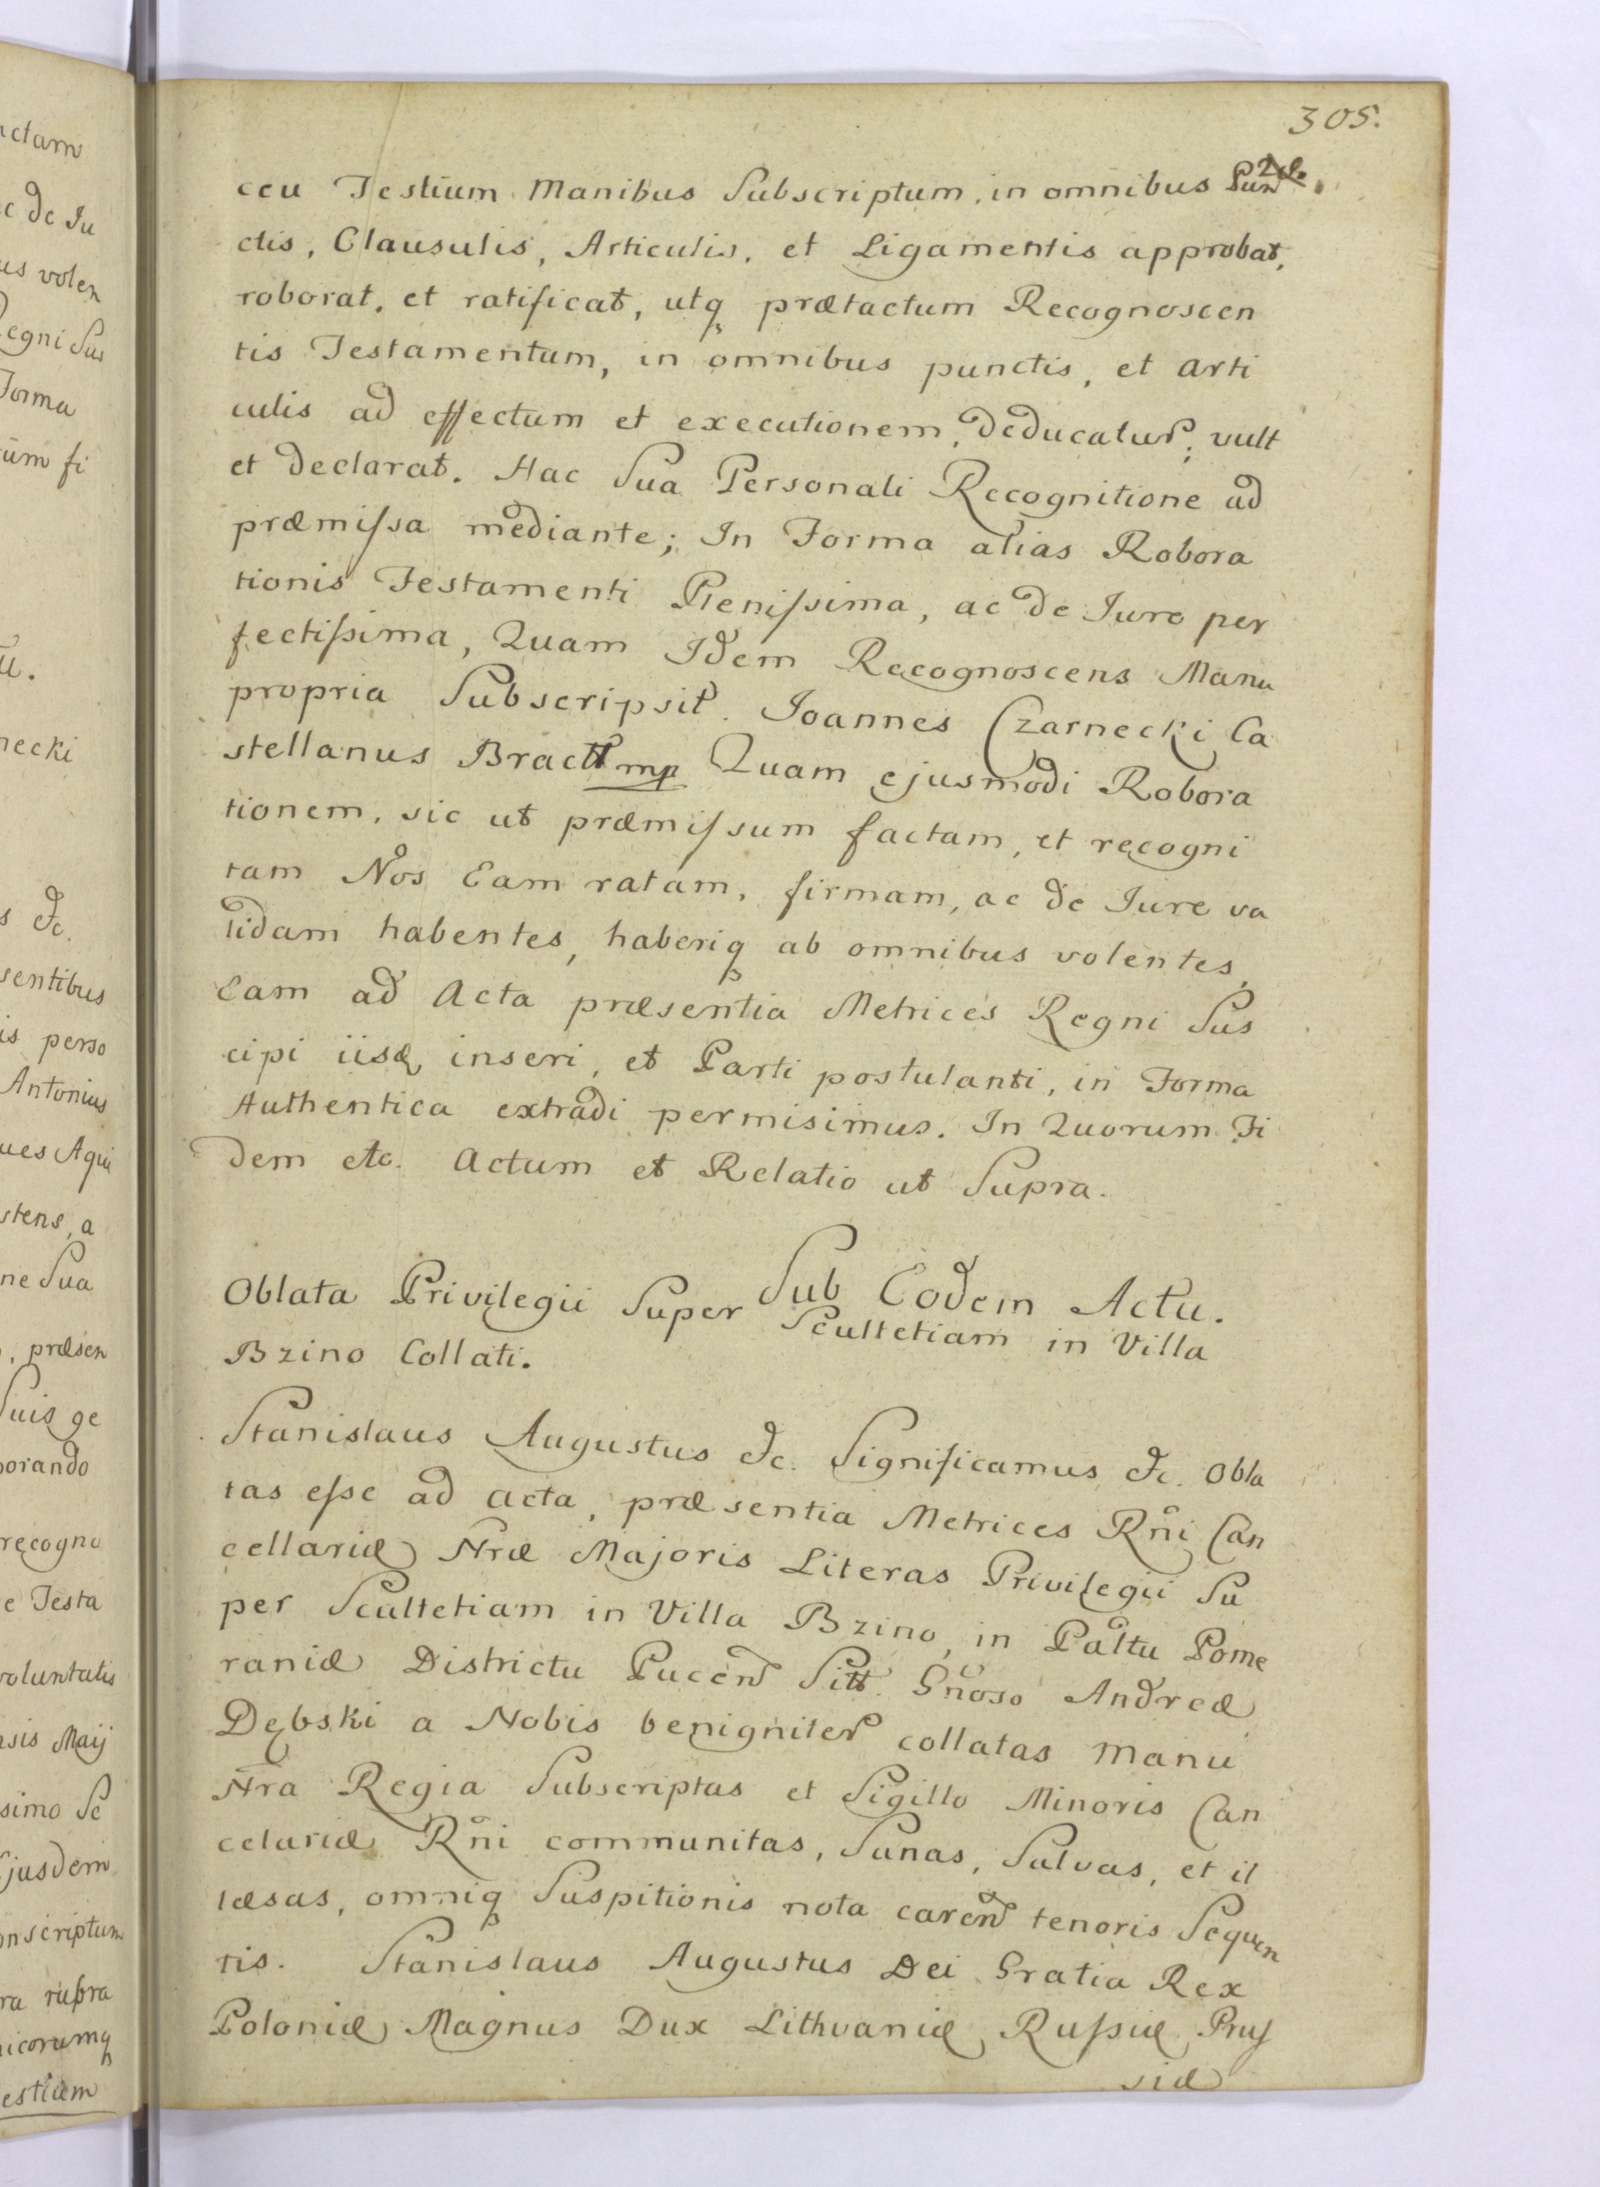 305.
ceu Testium Manibus Subscriptum, in omnibus Pun
ctis, Clausulis, Articulis, et Ligamentis approbat,
roborat, et ratificat, utq prætactum Recognoscen
tis Testamentum, in omnibus punctis, et Arti
culis ad effectum et executionem, deducatur, vult
et declarat. Hac Sua Personali Recognitione ad
præmissa mediante; In Forma alias Robora
tionis Testamenti Plenissima, ac de Jure per
fectissima, Quam Idem Recognoscens Manu
propria Subscripsit. Joannes Czarnecki Ca
stellanus Bractt mp Quam ejusmodi Robora
tionem, sic ut præmissum factam, et recogni
tam Nos Eam ratam, firmam, ac de Jure va
lidam habentes, haberiq ab omnibus volentes,
Eam ad Acta præsentia Metrices Regni Sus
cipi iisq inseri, et Parti postulanti, in Forma
Authentica extradi permisimus. In Quorum Fi
dem etc. Actum et Relatio ut Supra.
Sub Eodem Actu.
Oblata Privilegii Super Scultetiam in Villa
Bzino Collati.
Stanislaus Augustus &c. Significamus &c. Obla
tas esse ad acta, præsentia Metrices Rñi Can
cellariæ Nræ Majoris Literas Privilegii Su
per Scultetiam in Villa Bzino, in Paltu Pome
raniæ Districtu Pucen Sitt. Gnoso Andreæ
Dębski a Nobis benigniter collatas Manu
Nra Regia Subscriptas et Sigillo Minoris Can
celariæ Rñi communitas, Sanas, Salvas, et il
læsas, omniq Suspitionis nota caren tenoris Sequen
tis. Stanislaus Augustus Dei Gratia Rex
Poloniæ Magnus Dux Lithvaniæ Russiæ Prus
siæ
actam
c de Ju
us volen
Regni Sus
Forma
um fi
necki
s &c.
sentibus
is perso
Antonius
ues Aqui
stens, a
ne Sua
, præsen
Suis ge
orando
recogno
e Testa
voluntatis
nsis Maij
simo Se
Ejusdem
onscriptum
ra rupra
icorumq
estium